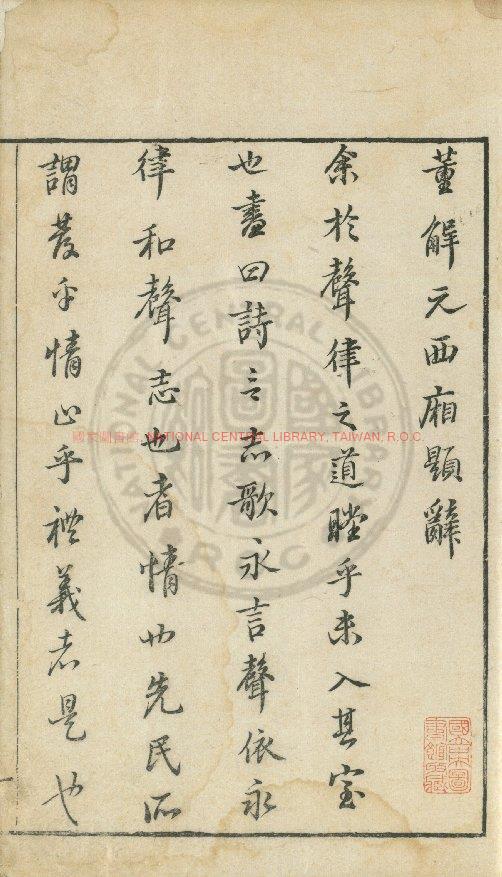 董解元西廂題辭
余於聲律之道瞠乎未入其室
也書曰詩言志歌永言聲依永
律和聲志也者情也先民所
謂發乎情止乎禮義者是也
國家圖書館, NATIONAL CENTRAL LIBRARY, TAIWAN, R.O.C.
NATIONAL CENTRAL LIBRARY
R.O.C.